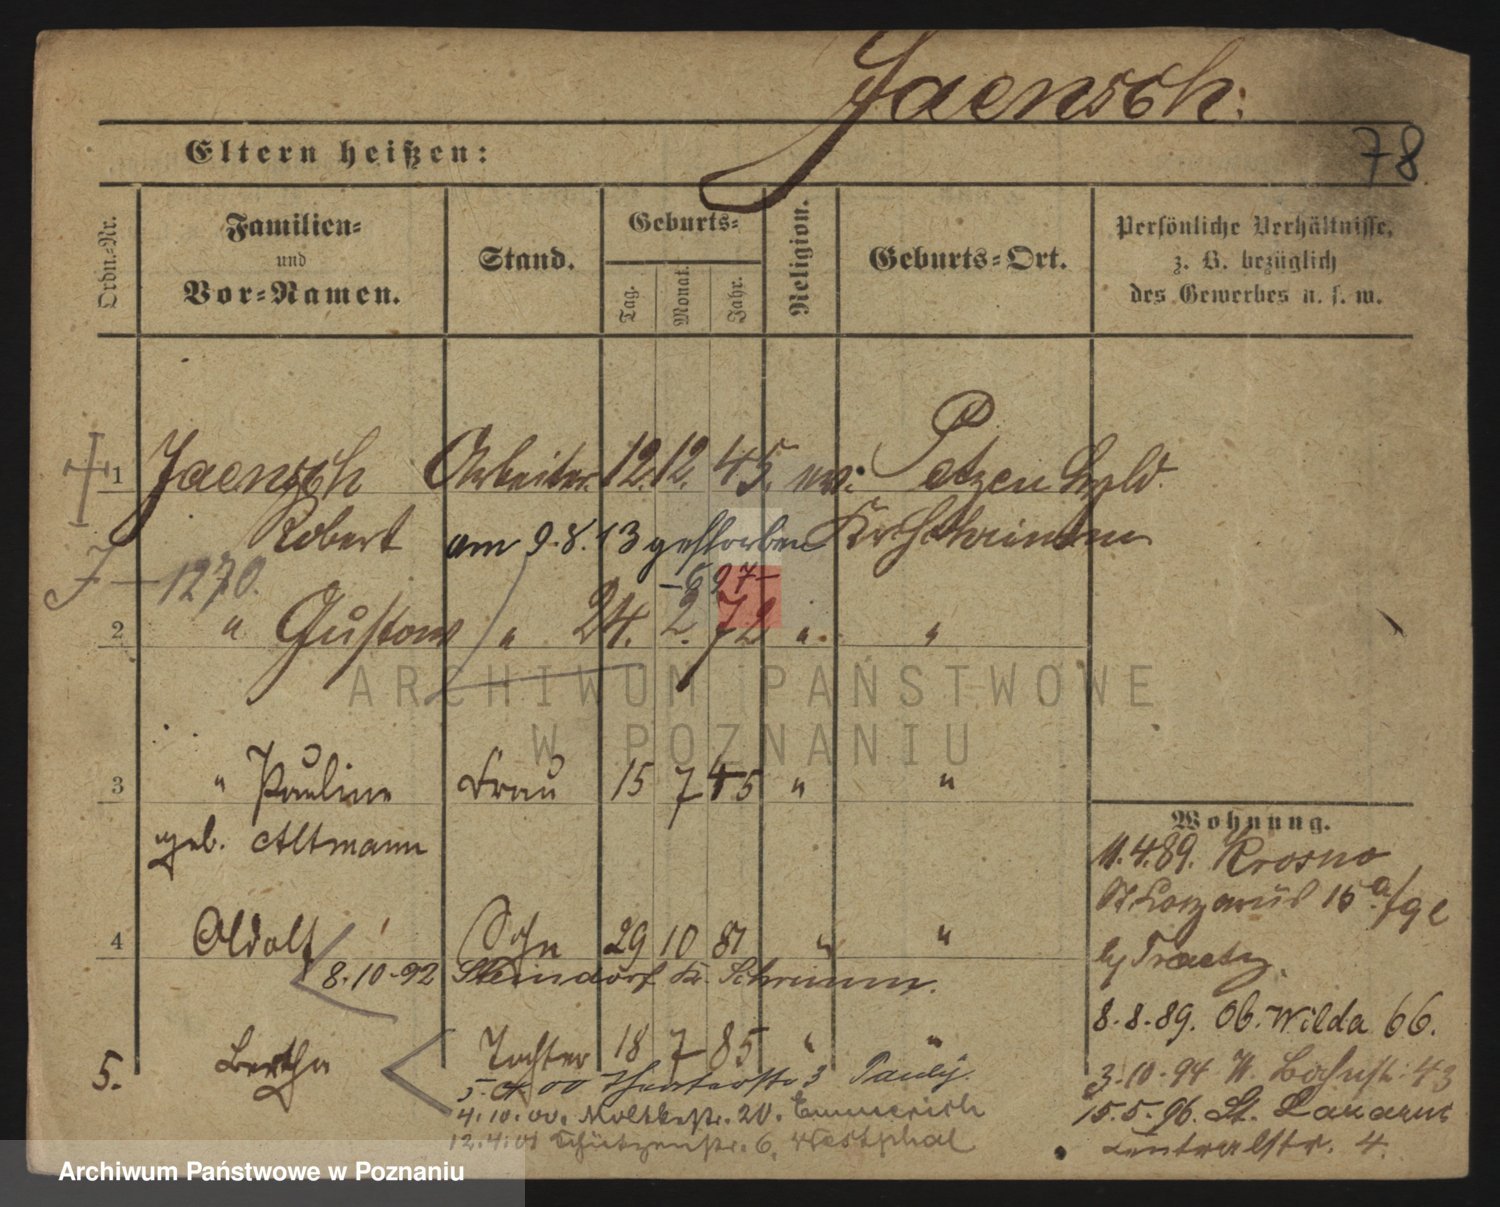 Jaensch.
78
Eltern heißen:
Ordn.-Nr.
Familien-
und
Vor-Namen.
Stand.
Geburts-
Tag.
Monat.
Jahr.
Religion.
Geburts-Ort.
Persönliche Verhältnisse,
z. B. bezüglich
des Gewerbes u. s. w.
1 Jaensch Arbeiter 12. 12. 45. ev. Petzen
Robert am 9.8.13 gestorben
1270. -627-
2 " Gustav " 24. 2. 72 " "
ARCHIWUM PAŃSTWOWE
W POZNANIU
3 " Pauline Frau 15 7 45 " "
geb. Altmann
Wohnung.
11.4.89. Krosno
St Lazarus 16a
4 Adolf Sohn 29 10 81 " "
8.10.92 Steindorf Kr. Schrimm.
by
8.8.89. Ob. Wilda 66.
5. Bertha Tochter 18 7 85 " "
3.10.94 43
5. 00 3
15.5.96. St. Lazarus
4.10.00. Moltkestr. 20. Emmerich
Centralstr. 4.
12.4.01 Schützenstr. 6, Westphal
Archiwum Państwowe w Poznaniu